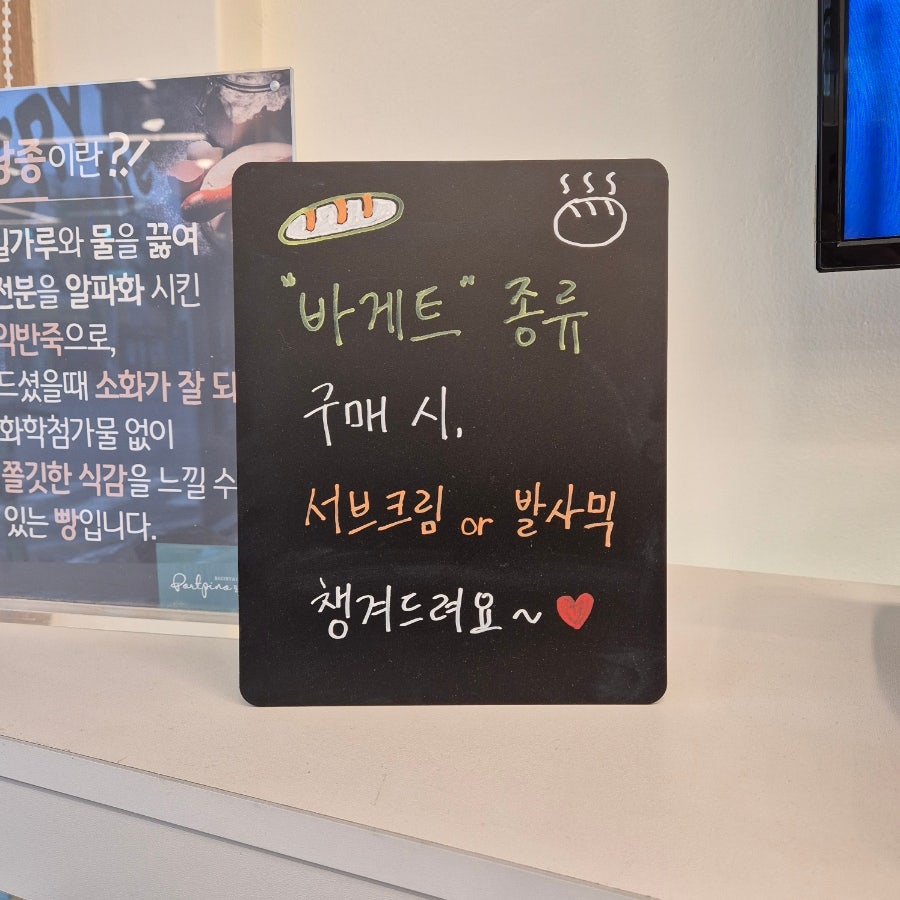 이란?!
와 물을 끓여
을 알파화 시킨
으로,
드셨을때 소화가 잘 되
화학첨가물 없이
쫄깃한 식감을 느낄 수
있는 빵입니다.
"바게트" 종류
구매 시,
서브크림 or 발사믹
챙겨드려요~